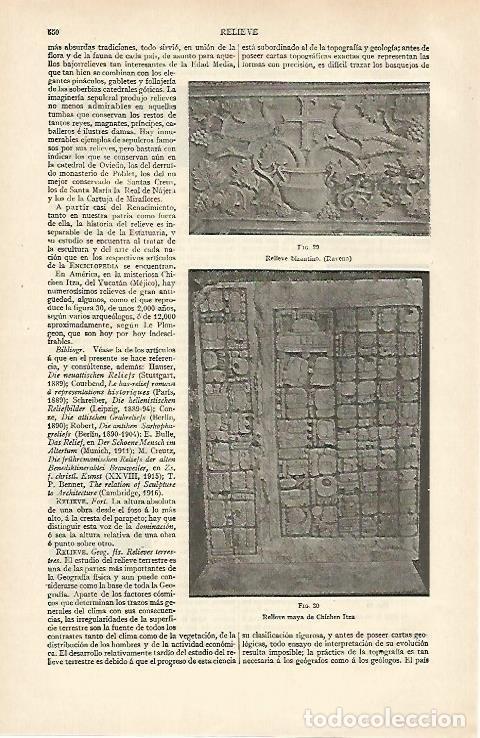 550
RELIEVE
más absurdas tradiciones, todo sirvió, en unión de la
flora y de la fauna de cada país, de asunto para aque-
llos bajorrelieves tan interesantes de la Edad Media,
que tan bien se combinan con los ele-
gantes pináculos, gabletes y follajería
de las soberbias catedrales góticas. La
imaginería sepulcral produjo relieves
no menos admirables en aquellas
tumbas que conservan los restos de
tantos reyes, magnates, príncipes, ca-
balleros é ilustres damas. Hay innu-
merables ejemplos de sepulcros famo-
sos por sus relieves, pero bastará con
indicar los que se conservan aún en
la catedral de Oviedo, los del derruí-
do monasterio de Poblet, los del no
mejor conservado de Santas Creus,
los de Santa María la Real de Nájera
y los de la Cartuja de Miraflores.
A partir casi del Renacimiento,
tanto en nuestra patria como fuera
de ella, la historia del relieve es in-
separable de la de la Estatuaria, y
su estudio se encuentra al tratar de
la escultura y del arte de cada na-
ción que en los respectivos artículos
de la ENCICLOPEDIA se encuentran.
En América, en la misteriosa Chi-
chen Itza, del Yucatán (Méjico), hay
numerosísimos relieves de gran anti-
güedad, algunos, como el que repro-
duce la figura 30, de unos 2,000 años,
según varios arqueólogos, ó de 12,000
aproximadamente, según Le Plon-
geon, que son hoy por hoy indesci-
frables.
Bibliogr. Véase la de los artículos
á que en el presente se hace referen-
cia, y consúltense, además: Hauser,
Die neuattischen Reliefs (Stuttgart,
1889); Courbend, Le bas-relief romain
á représentations historiques (París,
1899); Schreiber, Die hellenistischen
Reliefbilder (Leipzig, 1889-94); Con-
ze, Die attischen Grabreliefs (Berlín,
1890); Robert, Die antiken Sarkopha-
greliefs (Berlín, 1890-1904); E. Bulle,
Das Relief, en Der Schoene Mensch im
Altertum (Munich, 1911); M. Creutz,
Die frühromanischen Reliefs der alten
Benediktinerabtei Brauweiler, en Zs.
f. christl. Kunst (XXVIII, 1915); T.
P. Bennet, The relation of Sculpture
to Architecture (Cambridge, 1916).
RELIEVE. Fort. La altura absoluta
de una obra desde el foso á lo más
alto, á la cresta del parapeto; hay que
distinguir esta voz de la dominación,
ó sea la altura relativa de una obra
ó punto sobre otro.
RELIEVE. Geog. fís. Relieves terres-
tres. El estudio del relieve terrestre es
una de las partes más importantes de
la Geografía física y aun puede con-
siderarse como la base de toda la Geo-
grafía. Aparte de los factores cósmi-
cos que determinan los trazos más ge-
nerales del clima con sus consecuen-
cias, las irregularidades de la superfi-
cie terrestre son la fuente de todos los
contrastes tanto del clima como de la vegetación, de la
distribución de los hombres y de la actividad económi-
ca. El desarrollo relativamente tardío del estudio del re-
lieve terrestre es debido á que el progreso de esta ciencia
está subordinado al de la topografía y geología; antes de
poseer cartas topográficas exactas que representan las
formas con precisión, es difícil trazar los bosquejos de
FIG. 29
Relieve bizantino. (Ravena)
FIG. 30
Relieve maya de Chichen Itza
su clasificación rigurosa, y antes de poseer cartas geo-
lógicas, todo ensayo de interpretación de su evolución
resulta imposible; la práctica de la topografía es tan
necesaria á los geógrafos como á los geólogos. El país
todocoleccion.net